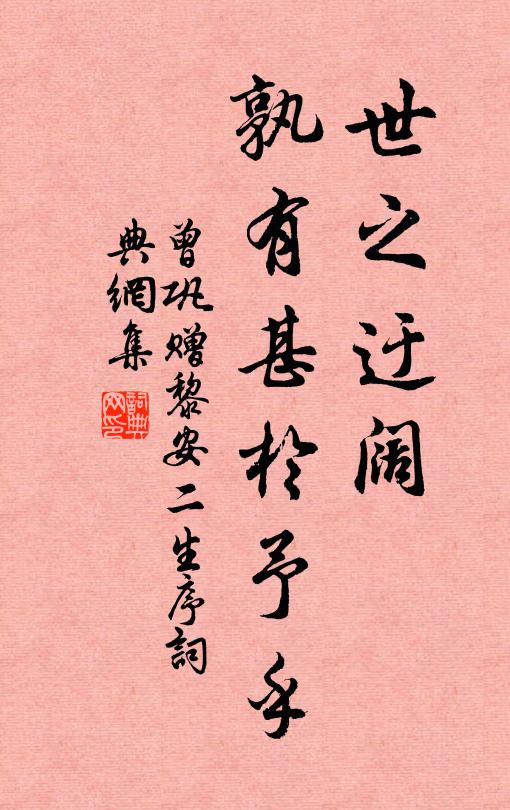 世之迂阔
孰有甚於予乎
曾巩赠黎安二生序詞
典網集
詞典
网印